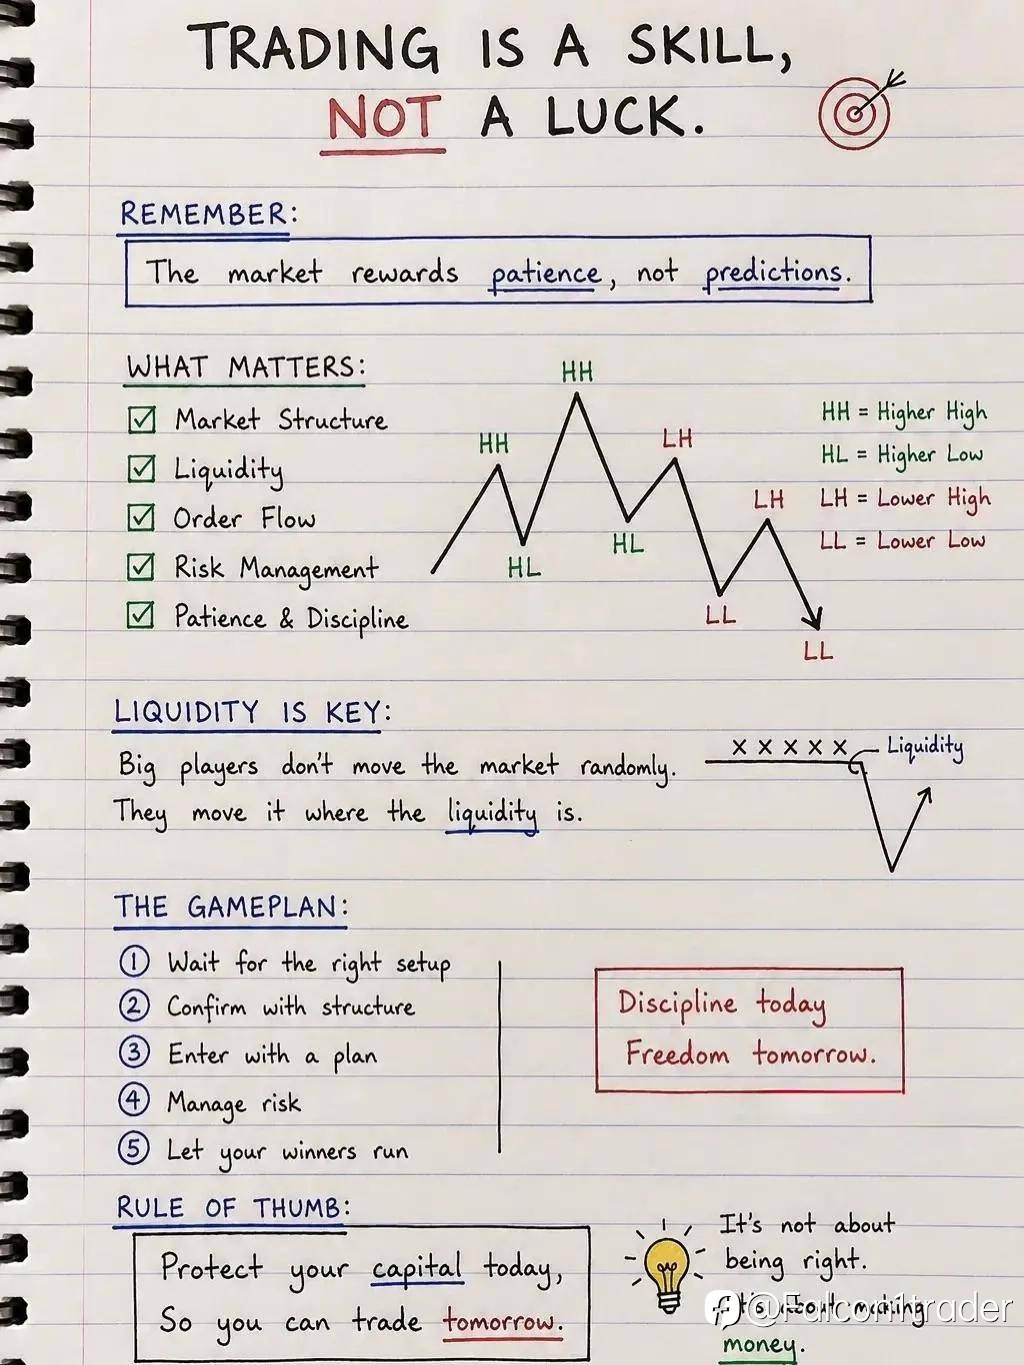 TRADING IS A SKILL,
NOT A LUCK.
REMEMBER:
The market rewards patience, not predictions.
WHAT MATTERS:
Market Structure
Liquidity
Order Flow
Risk Management
Patience & Discipline
HH
HH
LH
LH
HL
HL
LL
LL
HH = Higher High
HL = Higher Low
LH = Lower High
LL = Lower Low
LIQUIDITY IS KEY:
Big players don't move the market randomly.
They move it where the liquidity is.
x x x x x
Liquidity
THE GAMEPLAN:
1 Wait for the right setup
2 Confirm with structure
3 Enter with a plan
4 Manage risk
5 Let your winners run
Discipline today
Freedom tomorrow.
RULE OF THUMB:
Protect your capital today,
So you can trade tomorrow.
It's not about
being right.
It's about making
money.
@Falcon1trader